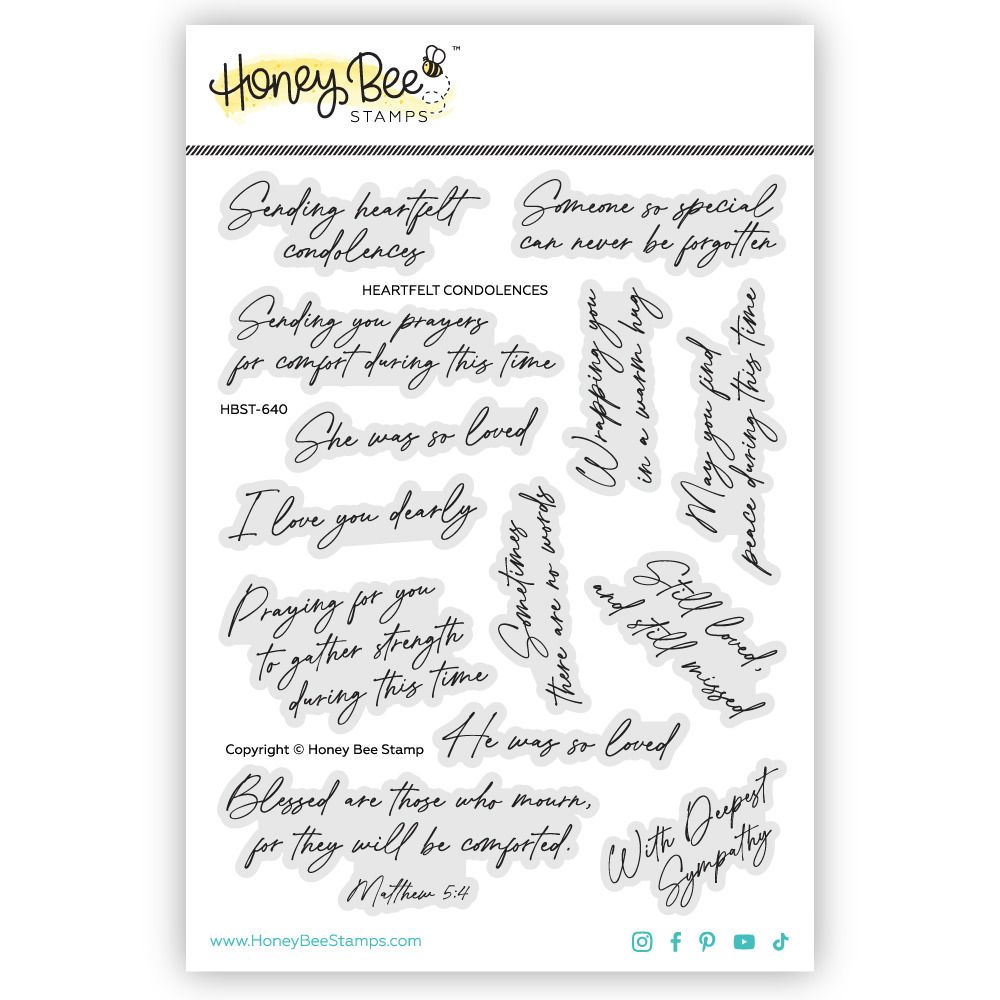 Honey Bee™
STAMPS
Sending heartfelt
condolences
Someone so special
can never be forgotten
HEARTFELT CONDOLENCES
Sending you prayers
for comfort during this time
Wrapping you
in a warm hug
May you find
peace during this time
HBST-640
She was so loved
I love you dearly
Sometimes
there are no words
Still loved,
and still missed
Praying for you
to gather strength
during this time
He was so loved
Copyright © Honey Bee Stamp
Blessed are those who mourn,
for they will be comforted.
Matthew 5:4
With Deepest
Sympathy
www.HoneyBeeStamps.com